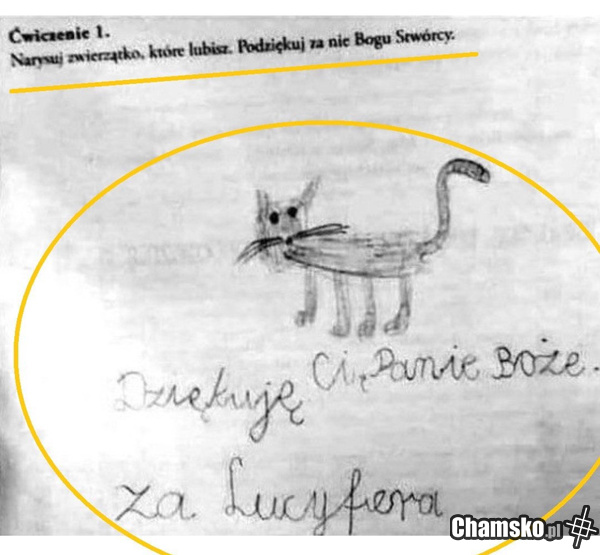 Ćwiczenie 1.
Narysuj zwierzątko, które lubisz. Podziękuj za nie Bogu Stwórcy.
Dziękuję Ci, Panie Boże.
za Lucyfera
Chamsko.pl